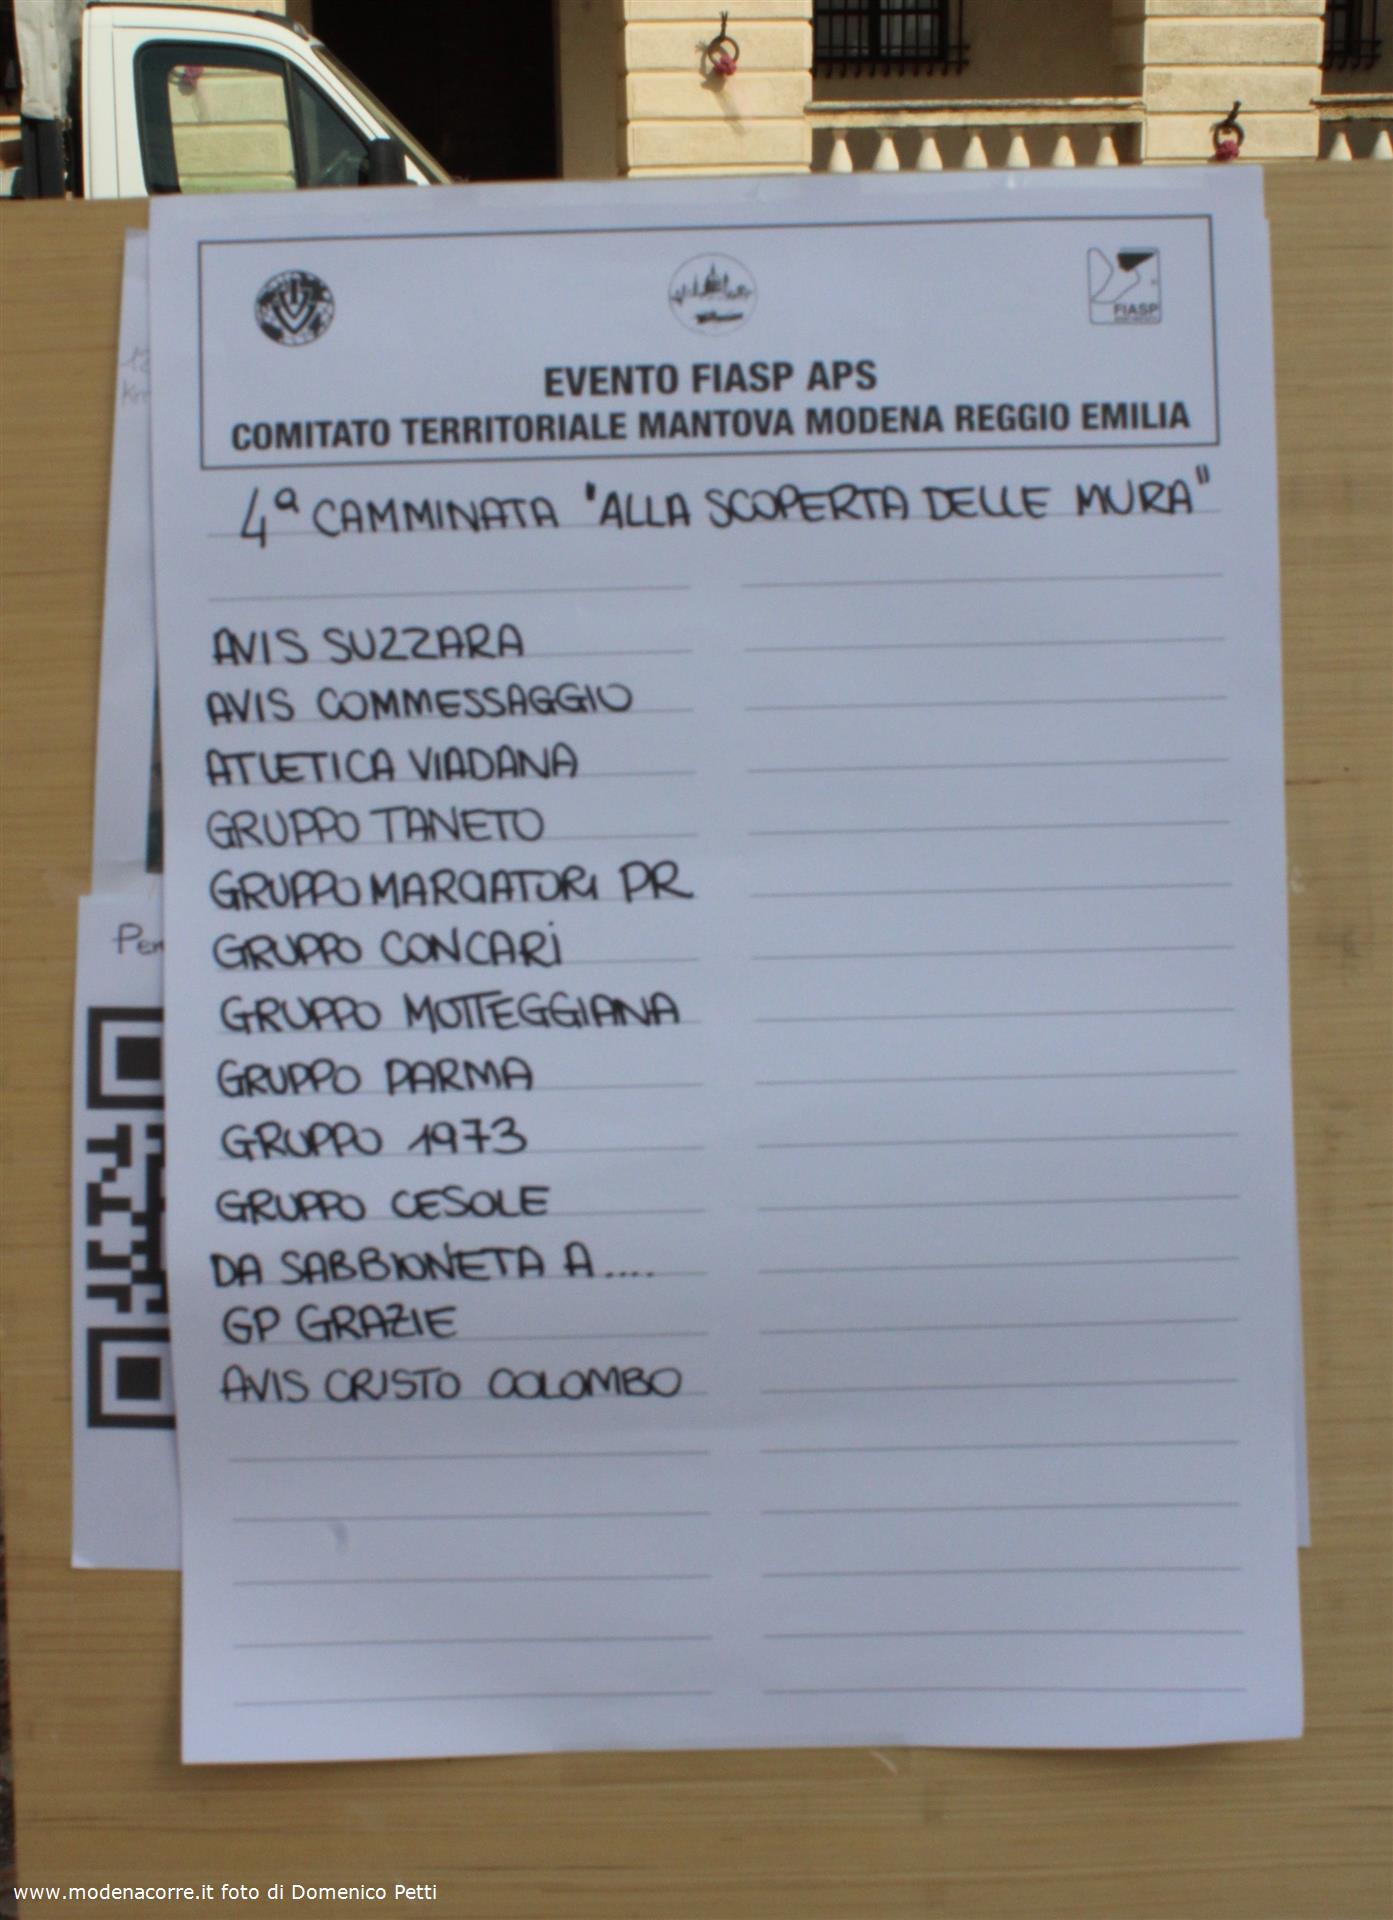 FIASP
EVENTO FIASP APS
COMITATO TERRITORIALE MANTOVA MODENA REGGIO EMILIA
4ª CAMMINATA "ALLA SCOPERTA DELLE MURA"
AVIS SUZZARA
AVIS COMMESSAGGIO
ATLETICA VIADANA
GRUPPO TANETO
GRUPPO MARCIATORI PR
GRUPPO CONCARI
GRUPPO MOTTEGGIANA
GRUPPO PARMA
GRUPPO 1973
GRUPPO CESOLE
DA SABBIONETA A....
GP GRAZIE
AVIS CRISTO COLOMBO
Per
www.modenacorre.it foto di Domenico Petti